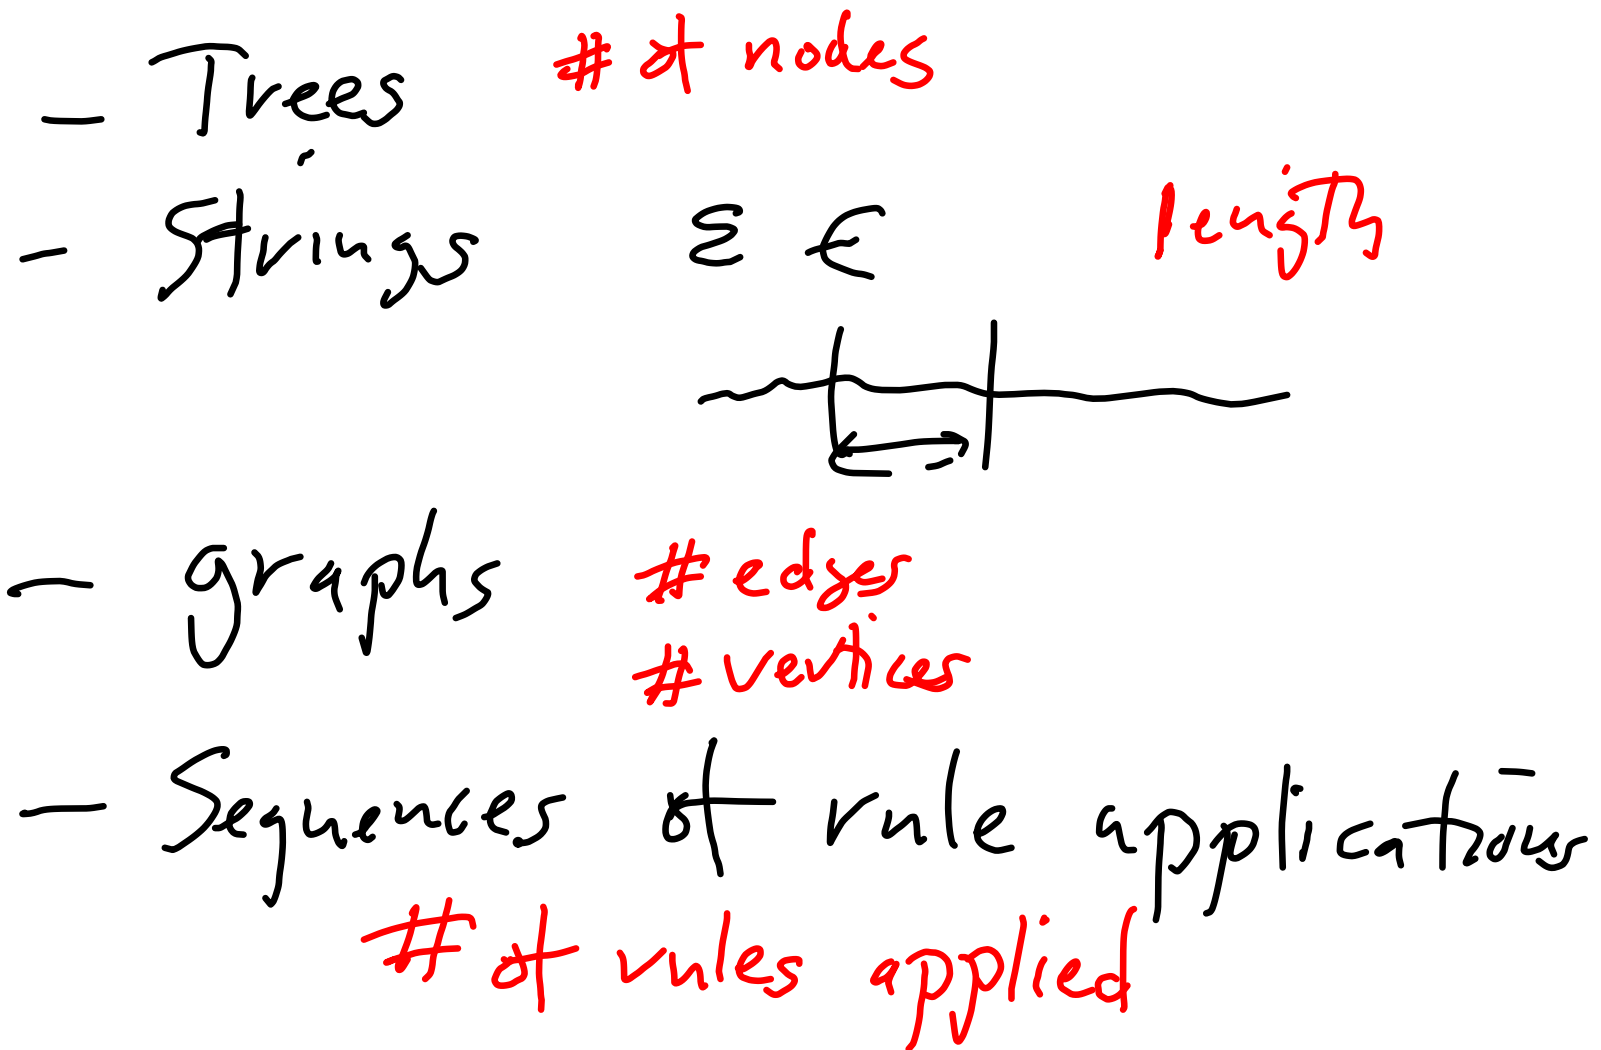 - Trees # of nodes
- Strings ε ϵ length
- graphs # edges
# vertices
- Sequences of rule applications
# of rules applied